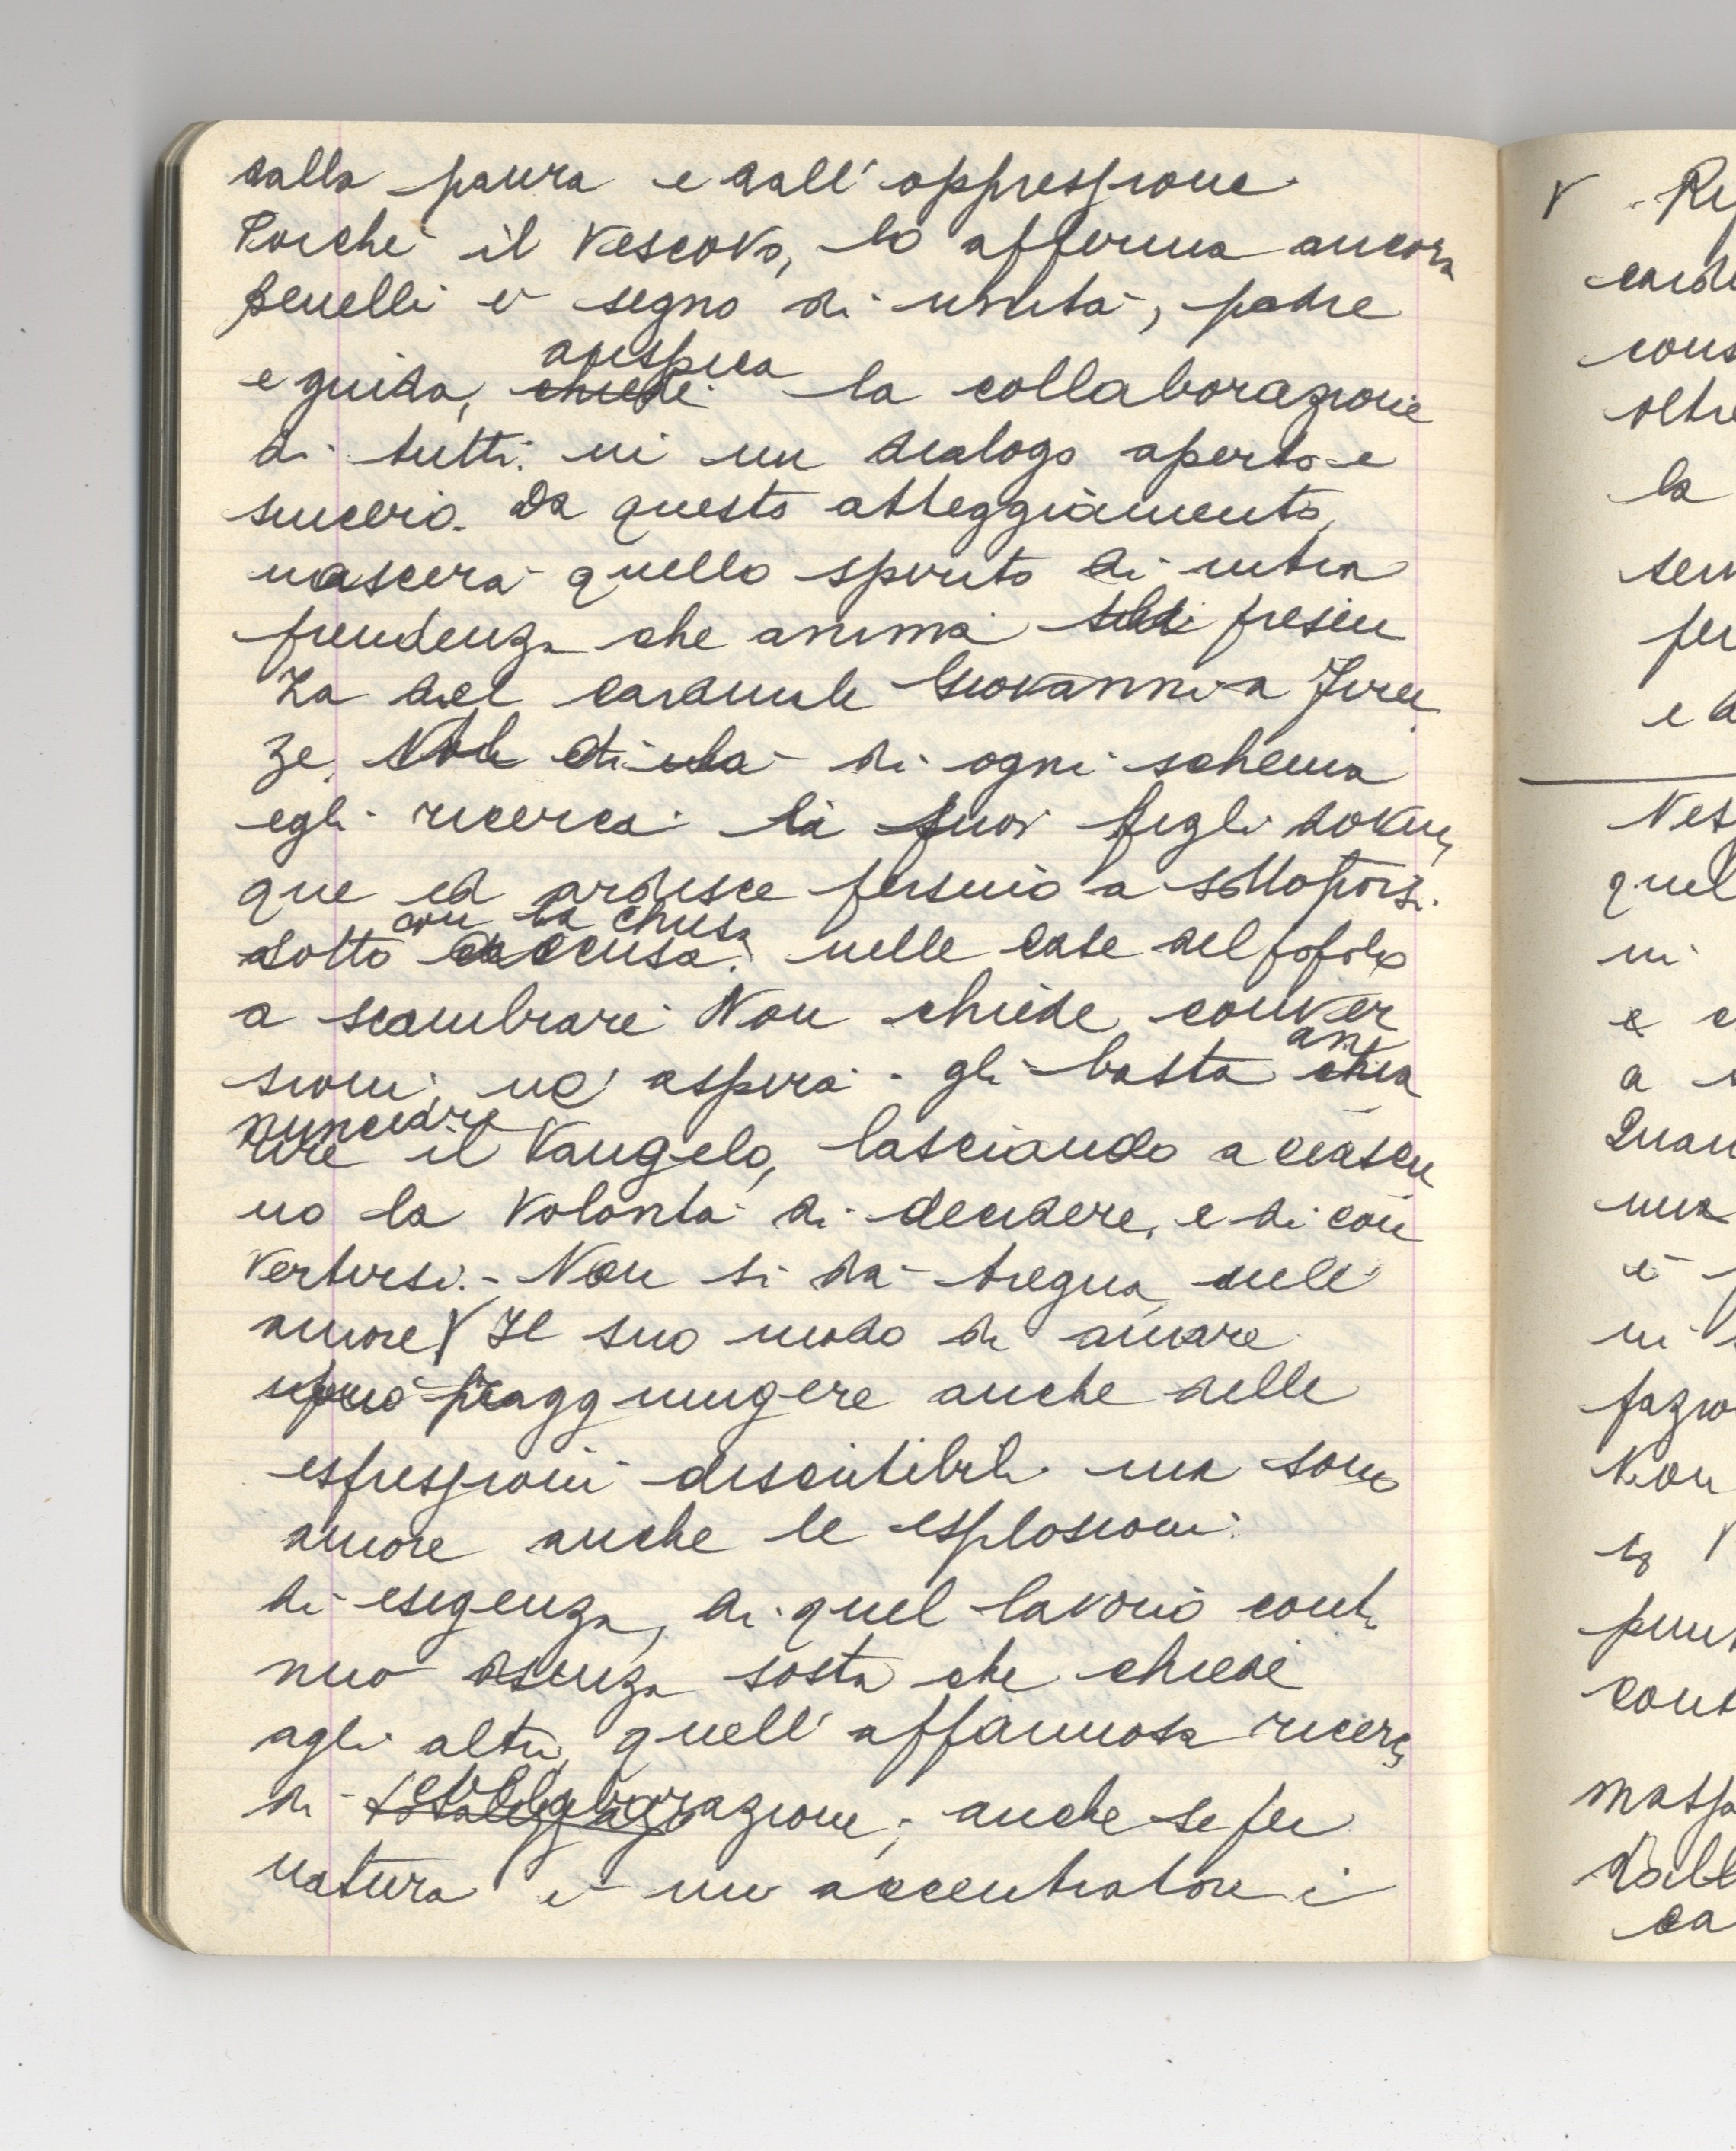 dalla paura e dall'oppressione.
Poiché il Vescovo, lo afferma ancora
Benelli è segno di unità, padre
auspica
e guida, chiede la collaborazione
di tutti in un dialogo aperto e
sincero. Da questo atteggiamento,
nascerà quello spirito di intra
prendenza che anima la presen
za del cardinale Giovanni a Firen
ze. di ogni schema
egli ricerca i suoi figli dovun
que ed ardisce persino a sottoporsi
con la chiusa
sotto accusa. nelle case del popolo
a scambrare Non chiede conver
sioni, né aspira - gli basta
an
nunciare
il Vangelo, lasciando a ciascu
no la volontà di decidere, e di con
vertirsi. - Non si dà tregua, nell'
amore Il suo modo di amare
può raggiungere anche delle
espressioni discutibili ma sono
amore anche le esplosioni
di esigenza, di quel lavorio conti
nuo senza sosta che chiede
agli altri, quell'affannosa ricerca
di collaborazione, anche se per
natura è un accentratore i
V . Ri
carde
cons
oltre
la
sem
per
e d
Nes
quel
in
e c
a
Quan
una
è
in
fazio
Non
V
punt
cont
massa
Dall
ca